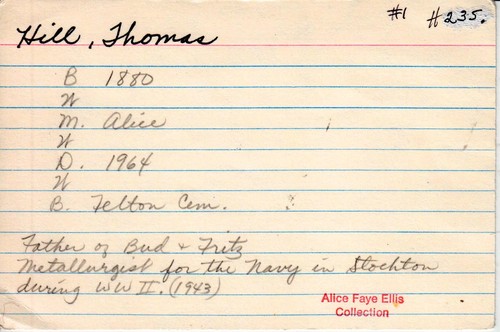 #1 #235.
Hill, Thomas
B 1880
W
M. Alice
W
D. 1964
W
B. Felton Cem.
Father of Bud + Fritz
Metallurgist for the Navy in Stockton
during WW II. (1943)
Alice Faye Ellis
Collection